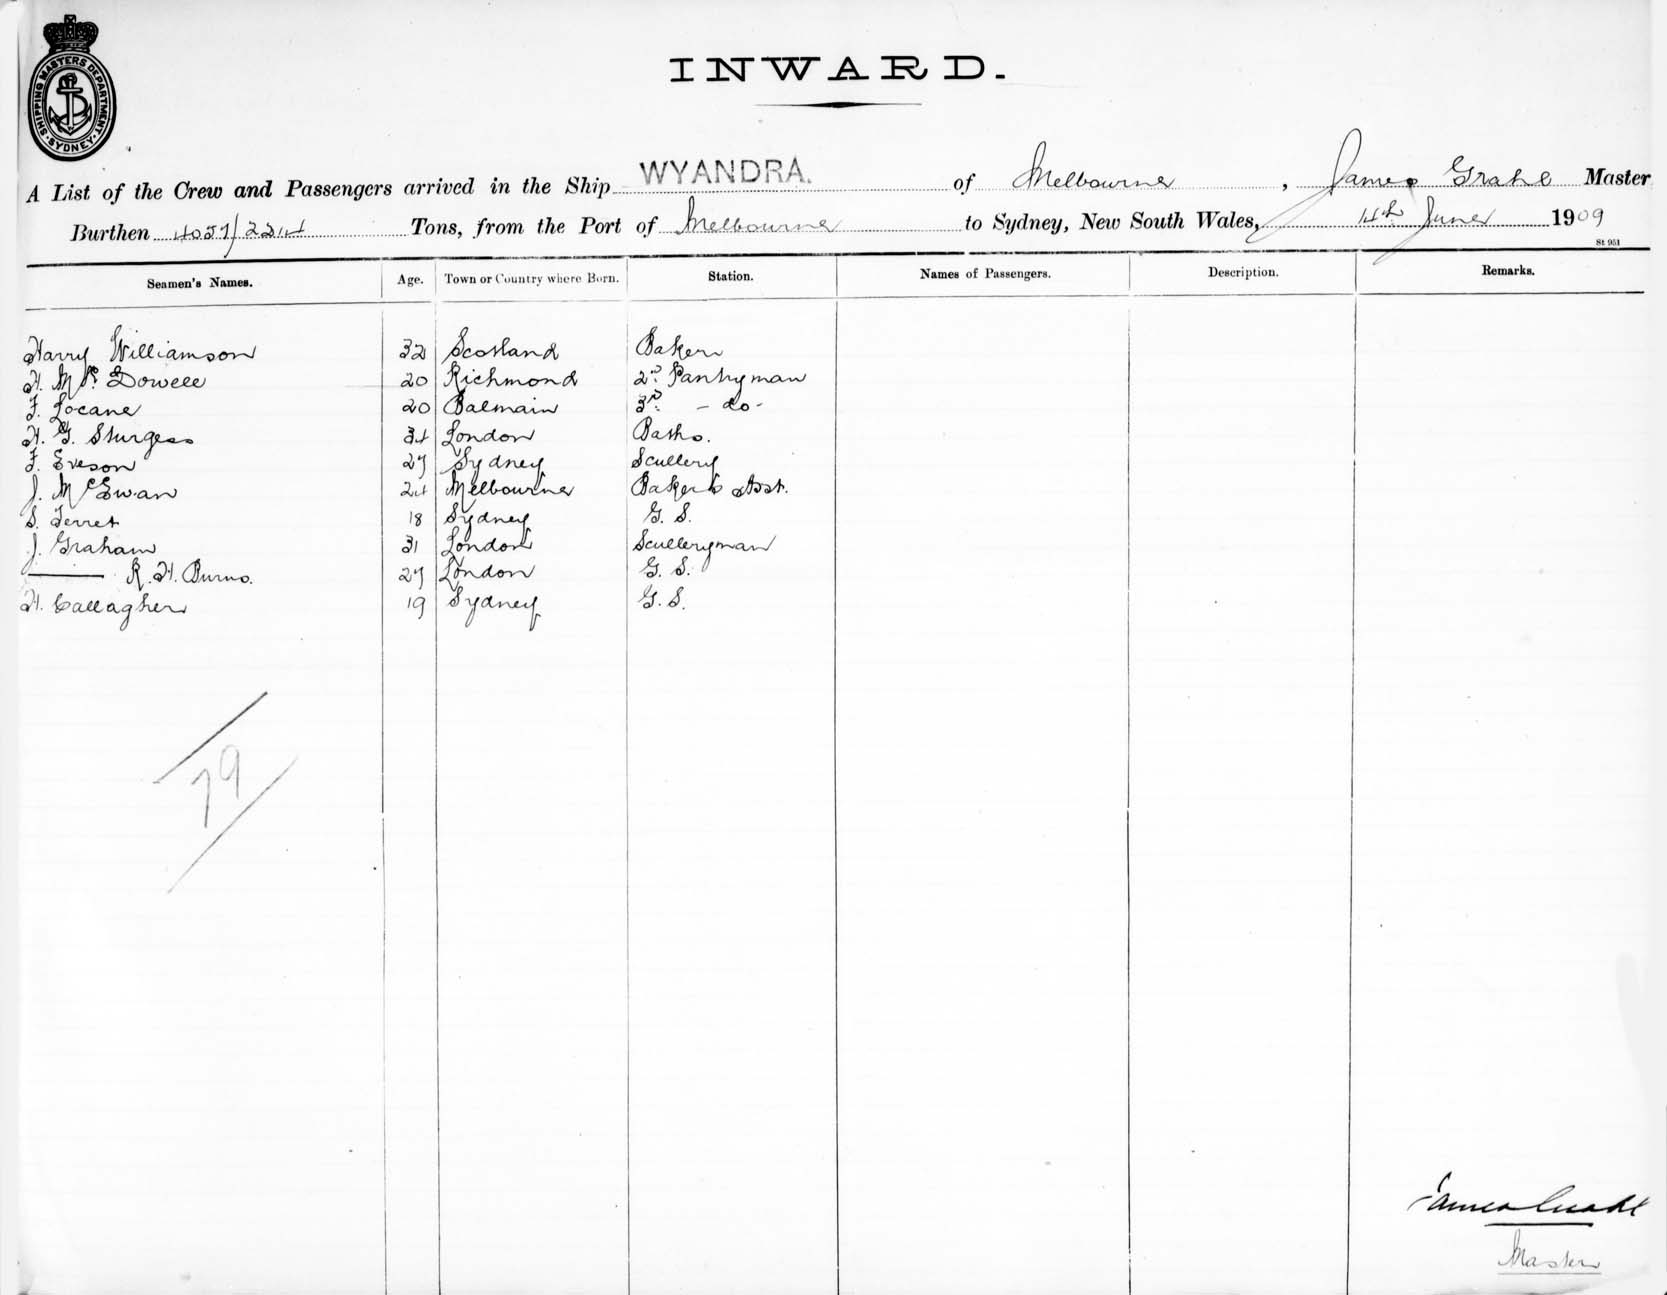 SHIPPING MASTERS DEPARTMENT. SYDNEY
INWARD.
A List of the Crew and Passengers arrived in the Ship WYANDRA. of Melbourne, James Grahl Master
Burthen 4057/2214 Tons, from the Port of Melbourne to Sydney, New South Wales, 4th June 1909
St 951
Seamen's Names. Age. Town or Country where Born. Station. Names of Passengers. Description. Remarks.
Harry Williamson 32 Scotland Baker
H. McDowell 20 Richmond 2nd Pantryman
F. Locane 20 Balmain 3rd - do -
H. G. Sturgess 34 London Baths.
F. Eveson 27 Sydney Scullery
J. McEwan 24 Melbourne Bakers Asst.
S. Ferret 18 Sydney G. S.
J. Graham 31 London Sculleryman
R. H. Burns. 27 London G. S.
H. Callagher 19 Sydney G. S.
79
James Grahl
Master